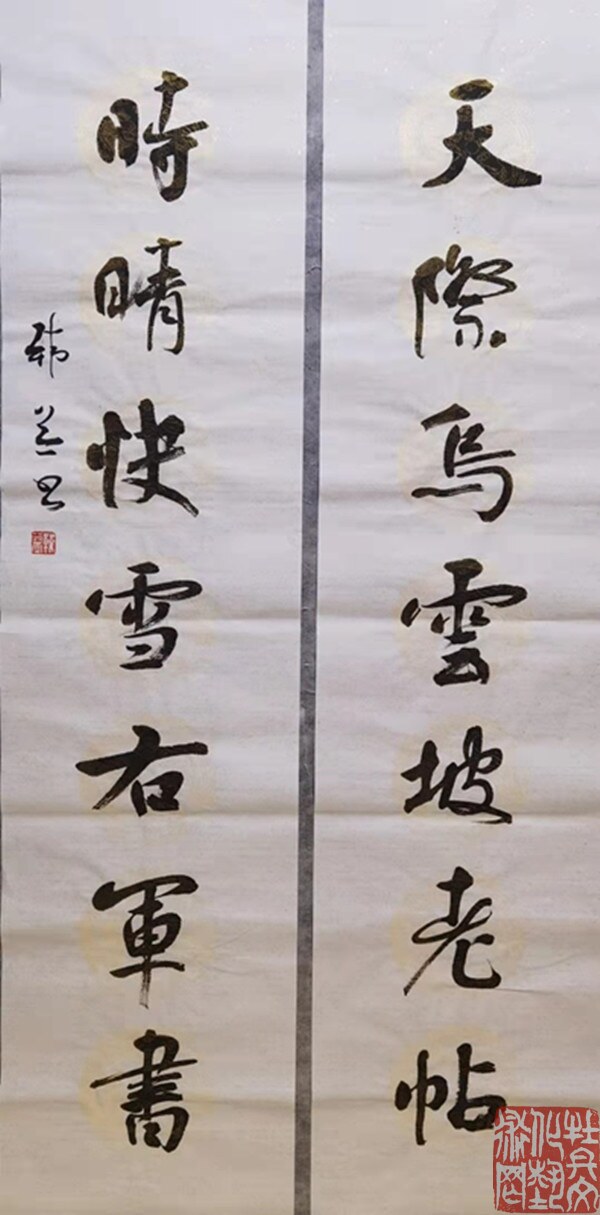 天際烏雲坡老帖
時晴快雪右軍書
韩